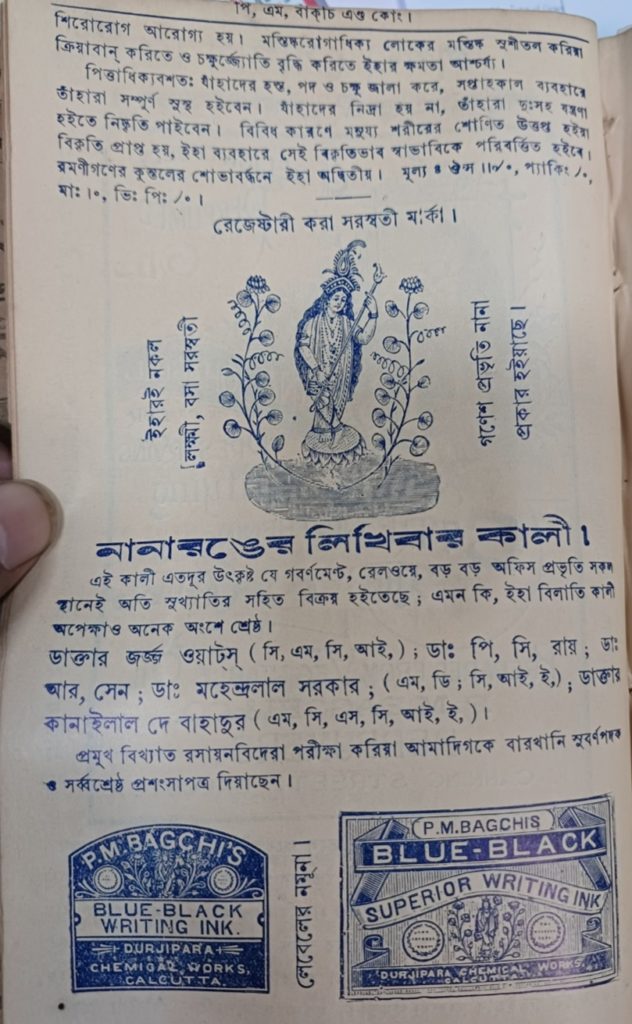 পি, এম, বাক্‌চি এণ্ড কোং।
শিরোরোগ আরোগ্য হয়। মস্তিষ্করোগাধিক্য লোকের মস্তিষ্ক সুশীতল করিয়া
ক্রিয়াবান্ করিতে ও চক্ষুর্জ্যোতি বৃদ্ধি করিতে ইহার ক্ষমতা আশ্চর্য্য।
পিত্তাধিক্যবশতঃ যাঁহাদের হস্ত, পদ ও চক্ষু জ্বালা করে, সপ্তাহকাল ব্যবহারে
তাঁহারা সম্পূর্ণ সুস্থ হইবেন। যাঁহাদের নিদ্রা হয় না, তাঁহারা দুঃসহ যন্ত্রণা
হইতে নিষ্কৃতি পাইবেন। বিবিধ কারণে মনুষ্য শরীরের শোণিত উত্তপ্ত হইয়া
বিকৃতি প্রাপ্ত হয়, ইহা ব্যবহারে সেই বিকৃতিভাব স্বাভাবিকে পরিবর্ত্তিত হইবে।
রমণীগণের কুন্তলের শোভাবর্দ্ধনে ইহা অদ্বিতীয়। মূল্য ৪ ঔন্স ॥৵০, প্যাকিং ৴০,
মাঃ।০, ভিঃ পিঃ ৴০।
রেজেষ্টারী করা সরস্বতী মার্কা।
ইহারই নকল
লক্ষ্মী, বসা সরস্বতী
গণেশ প্রভৃতি নানা
প্রকার হইয়াছে।
নানারঙের লিখিবার কালী।
এই কালী এতদূর উৎকৃষ্ট যে গবর্ণমেণ্ট, রেলওয়ে, বড় বড় অফিস প্রভৃতি সকল
স্থানেই অতি সুখ্যাতির সহিত বিক্রয় হইতেছে; এমন কি, ইহা বিলাতি কালী
অপেক্ষাও অনেক অংশে শ্রেষ্ঠ।
ডাক্তার জর্জ্জ ওয়াট্‌স্ (সি, এম, সি, আই,); ডাঃ পি, সি, রায়; ডাঃ
আর, সেন; ডাঃ মহেন্দ্রলাল সরকার; (এম, ডি; সি, আই, ই,); ডাক্তার
কানাইলাল দে বাহাদুর (এম, সি, এস, সি, আই, ই,)।
প্রমুখ বিখ্যাত রসায়নবিদেরা পরীক্ষা করিয়া আমাদিগকে বারখানি সুবর্ণপদক
ও সর্ব্বশ্রেষ্ঠ প্রশংসাপত্র দিয়াছেন।
P.M.BAGCHI'S
BLUE-BLACK
WRITING INK.
DURJIPARA
CHEMICAL WORKS,
CALCUTTA.
লেবেলের নমুনা।
P.M.BAGCHIS
BLUE-BLACK
SUPERIOR WRITING INK
DURJIPARA CHEMICAL WORKS.
CALCUTTA